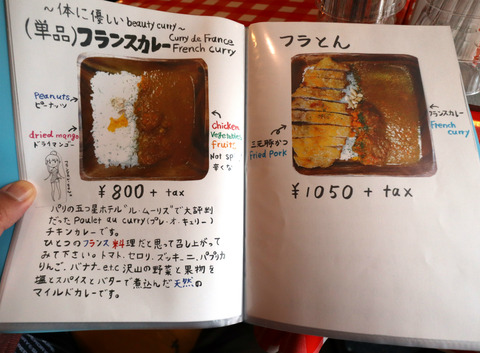 ～体に優しい beauty curry～
(単品)フランスカレー Curry de France
French curry
Peanuts
ピーナッツ
dried mango
ドライマンゴー
Chicken
Vegetables
fruits
Not SP
辛くな
¥800 + tax
パリの五つ星ホテル"ル・ムーリス"で大評判
だった Poulet au curry(プレ・オ・キュリー)
チキンカレーです。
ひとつのフランス料理だと思って召し上がって
みて下さい。トマト、セロリ、ズッキーニ、パプリカ
りんご、バナナ…etc 沢山の野菜と果物を
塩とスパイスとバターで煮込んだ天然の
マイルドカレーです。
フラとん
フランスカレー
French
curry
三元豚かつ
Fried Pork
¥1050 + tax